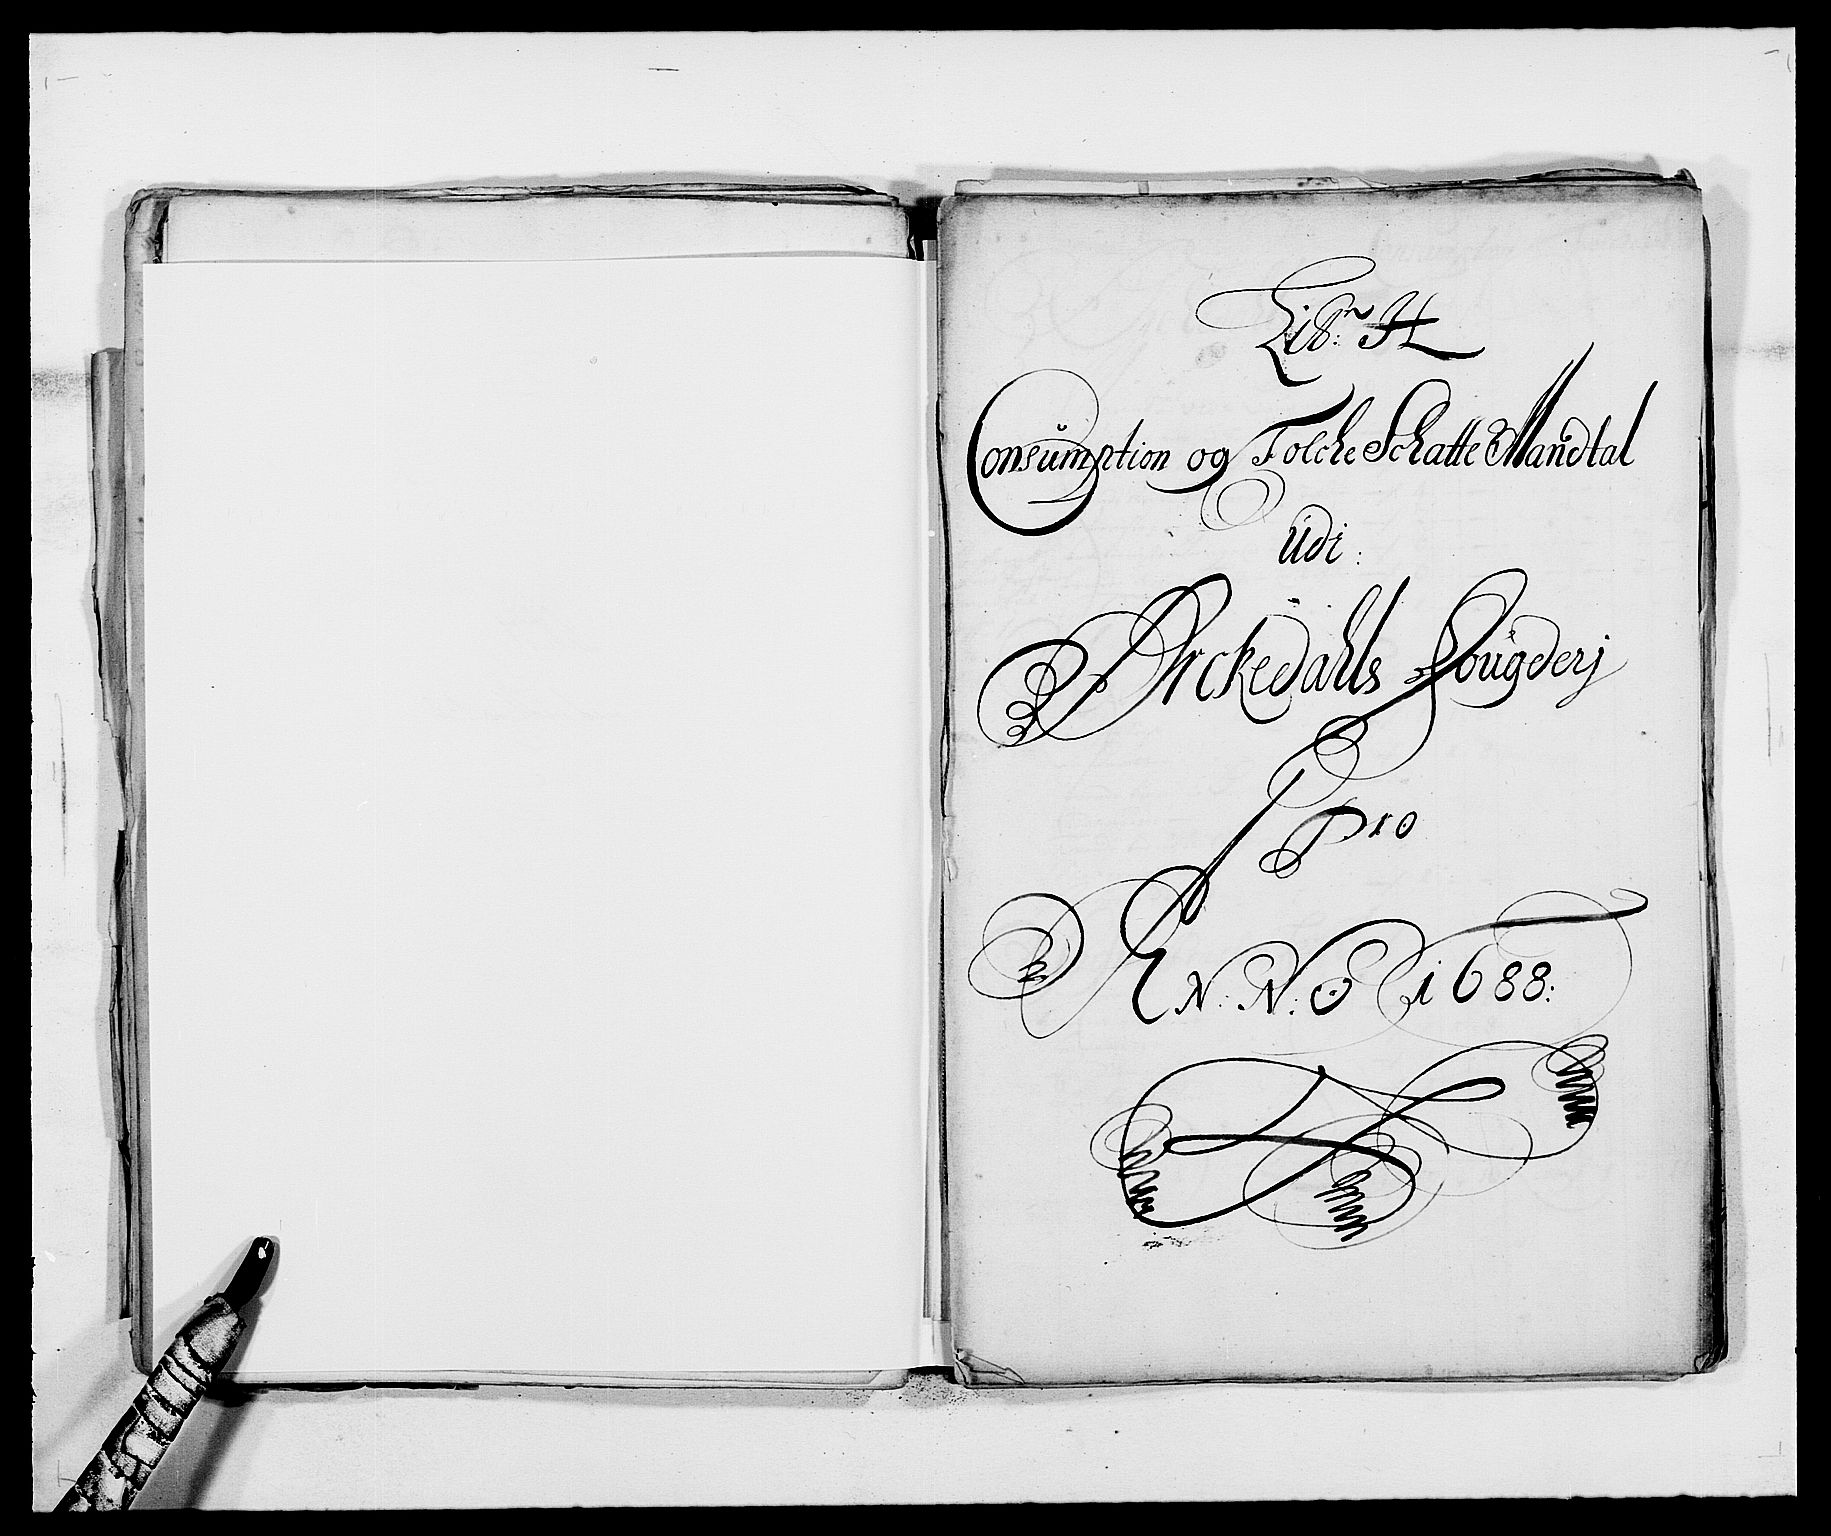 Libr: H
Consumption og Folche Schatte Mandtal
Udi:
Orckedahls Fougderj
Pro
ANNO 1688: